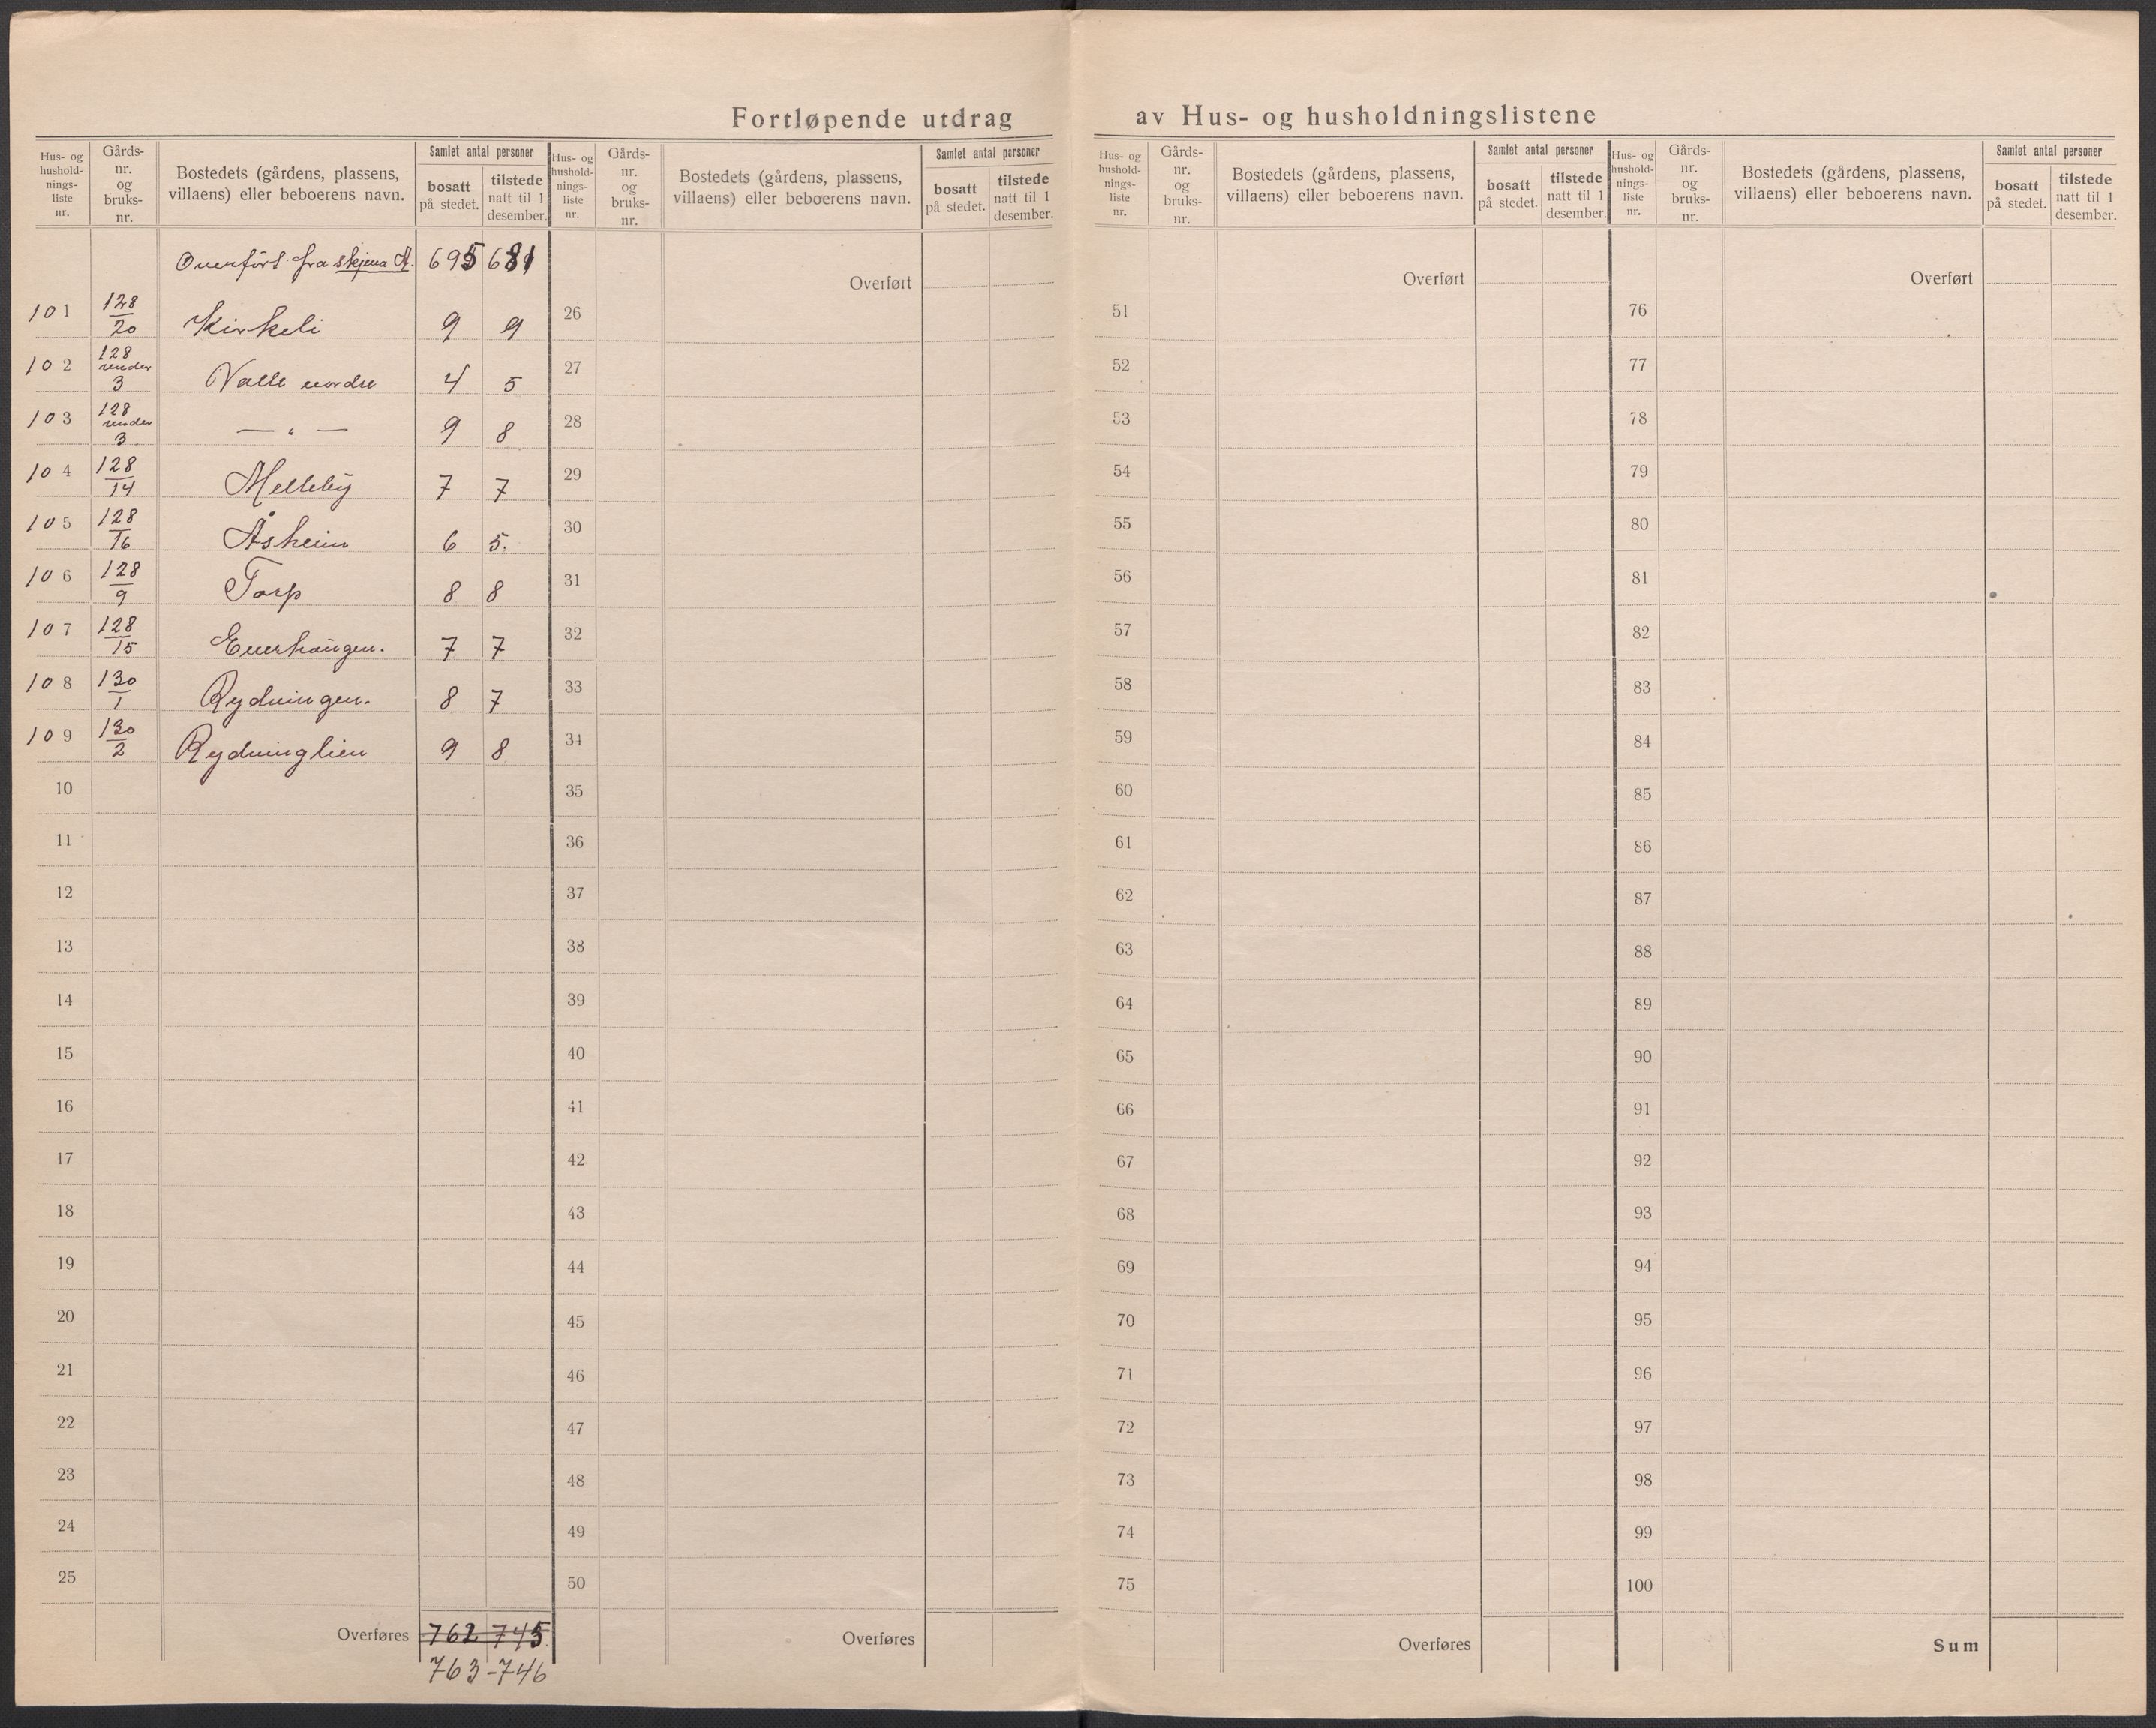 Fortløpende utdrag av Hus- og husholdningslistene
Hus- og hushold-nings-liste nr. | Gårds-nr. og bruks-nr. | Bostedets (gårdens, plassens, villaens) eller beboerens navn. | Samlet antal personer | bosatt på stedet. | tilstede natt til 1 desember.
Hus- og hushold-nings-liste nr. | Gårds-nr. og bruks-nr. | Bostedets (gårdens, plassens, villaens) eller beboerens navn. | Samlet antal personer | bosatt på stedet. | tilstede natt til 1 desember.
Hus- og hushold-nings-liste nr. | Gårds-nr. og bruks-nr. | Bostedets (gårdens, plassens, villaens) eller beboerens navn. | Samlet antal personer | bosatt på stedet. | tilstede natt til 1 desember.
Hus- og hushold-nings-liste nr. | Gårds-nr. og bruks-nr. | Bostedets (gårdens, plassens, villaens) eller beboerens navn. | Samlet antal personer | bosatt på stedet. | tilstede natt til 1 desember.
Overført fra skjema A. 695 681
101 128/20 Kirkeli 9 9
102 128 under 3 Valle nordre 4 5
103 128 under 3 — " — 9 8
104 128/14 Melleby 7 7
105 128/16 Åsheim 6 5.
106 128/9 Torp 8 8
107 128/15 Enerhaugen. 7 7
108 130/1 Rydningen. 8 7
109 130/2 Rydninglien 9 8
10
11
12
13
14
15
16
17
18
19
20
21
22
23
24
25
Overføres 762 745.
763-746
Overført
26
27
28
29
30
31
32
33
34
35
36
37
38
39
40
41
42
43
44
45
46
47
48
49
50
Overføres
Overført
51
52
53
54
55
56
57
58
59
60
61
62
63
64
65
66
67
68
69
70
71
72
73
74
75
Overføres
Overført
76
77
78
79
80
81
82
83
84
85
86
87
88
89
90
91
92
93
94
95
96
97
98
99
100
Sum